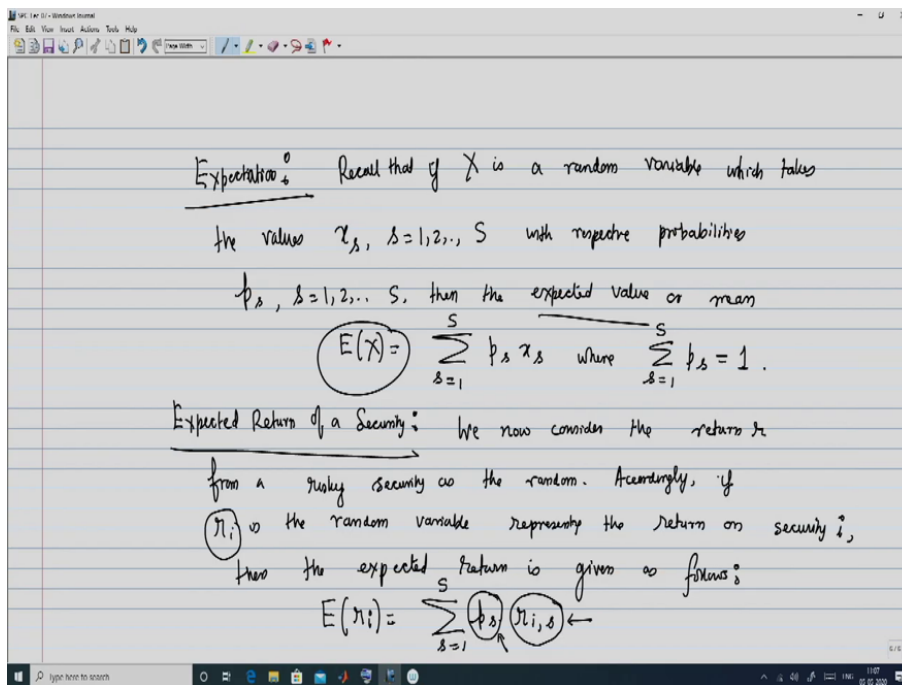 SPC Lec 07 - Windows Journal
File Edit View Insert Actions Tools Help
Page Width
Expectation: Recall that if X is a random variable which takes
the values x_s, s=1,2,., S with respective probabilities
p_s, s=1,2,.. S, then the expected value or mean
E(X) = \sum_{s=1}^{S} p_s x_s where \sum_{s=1}^{S} p_s = 1.
Expected Return of a Security: We now consider the return r
from a risky security as the random. Accordingly, if
r_i is the random variable representing the return on security i,
then the expected return is given as follows:
E(r_i) = \sum_{s=1}^{S} p_s r_{i,s} ←
Type here to search
ENG
11:07
05-05-2020